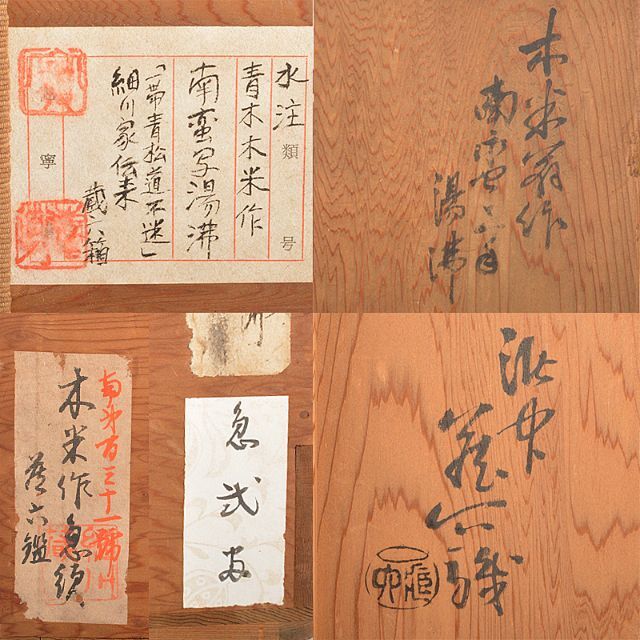 水注 類 号
青木木米作
南蛮写湯沸
「一帯青松道不迷」
細川家伝来
蔵六箱
寧
木米翁作
南蛮
湯沸
南第百三十一號
木米作急須
蔵六鑑
急弐
蔵六識